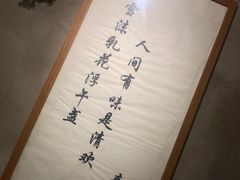 雪沫乳花浮午盏
人间有味是清欢